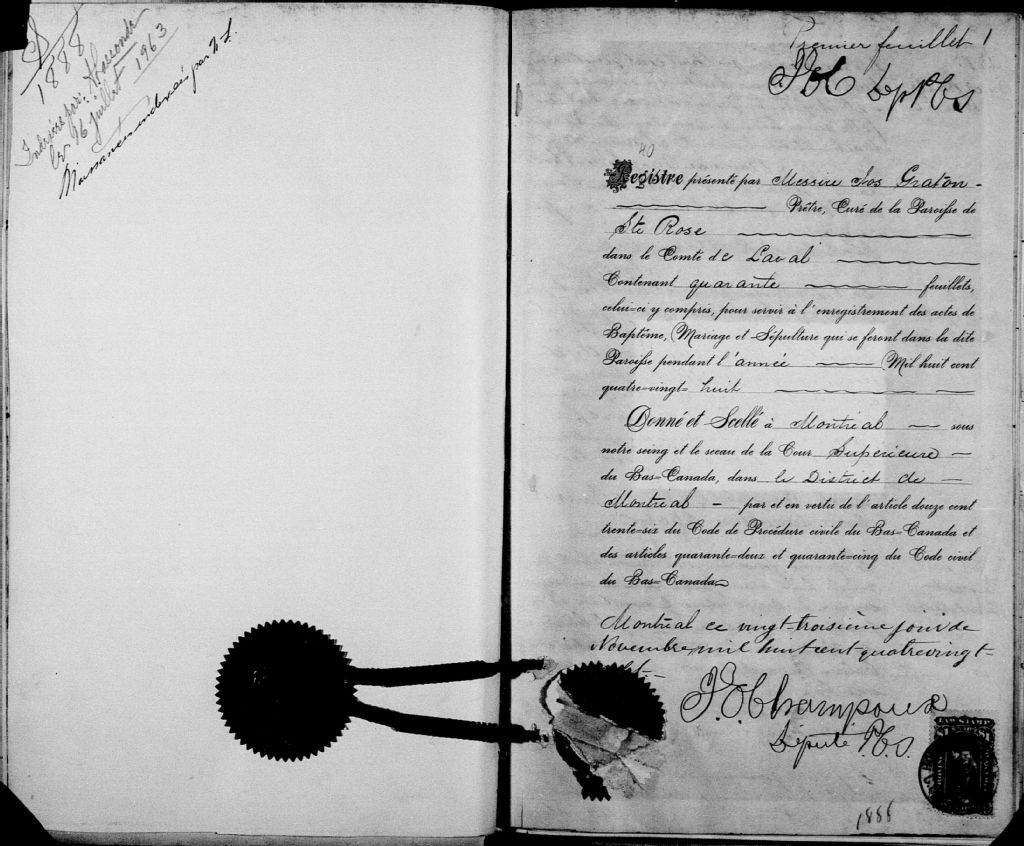 1888
Indexées par:
le 16 juillet 1963
Naissances indexées par
Premier feuillet 1
Dep P.C.S
40
Registre présenté par Messire Jos Graton
Prêtre, Curé de la Paroisse de
Ste Rose
dans le Comté de Laval
Contenant quarante feuillets,
celui-ci y compris, pour servir à l'enregistrement des actes de
Baptême, Mariage et Sépulture qui se feront dans la dite
Paroisse pendant l'année Mil huit cent
quatre-vingt huit
Donné et Scellé à Montréal sous
notre seing et le sceau de la Cour Supérieure
du Bas-Canada, dans le District de
Montréal par et en vertu de l'article douze cent
trente-six du Code de Procédure civile du Bas-Canada et
des articles quarante-deux et quarante-cinq du Code civil
du Bas-Canada
Montréal ce vingt-troisième jour de
Novembre mil huit cent quatre vingt-
J. E. Champoux
Député P.C.S.
LAW STAMP
1888